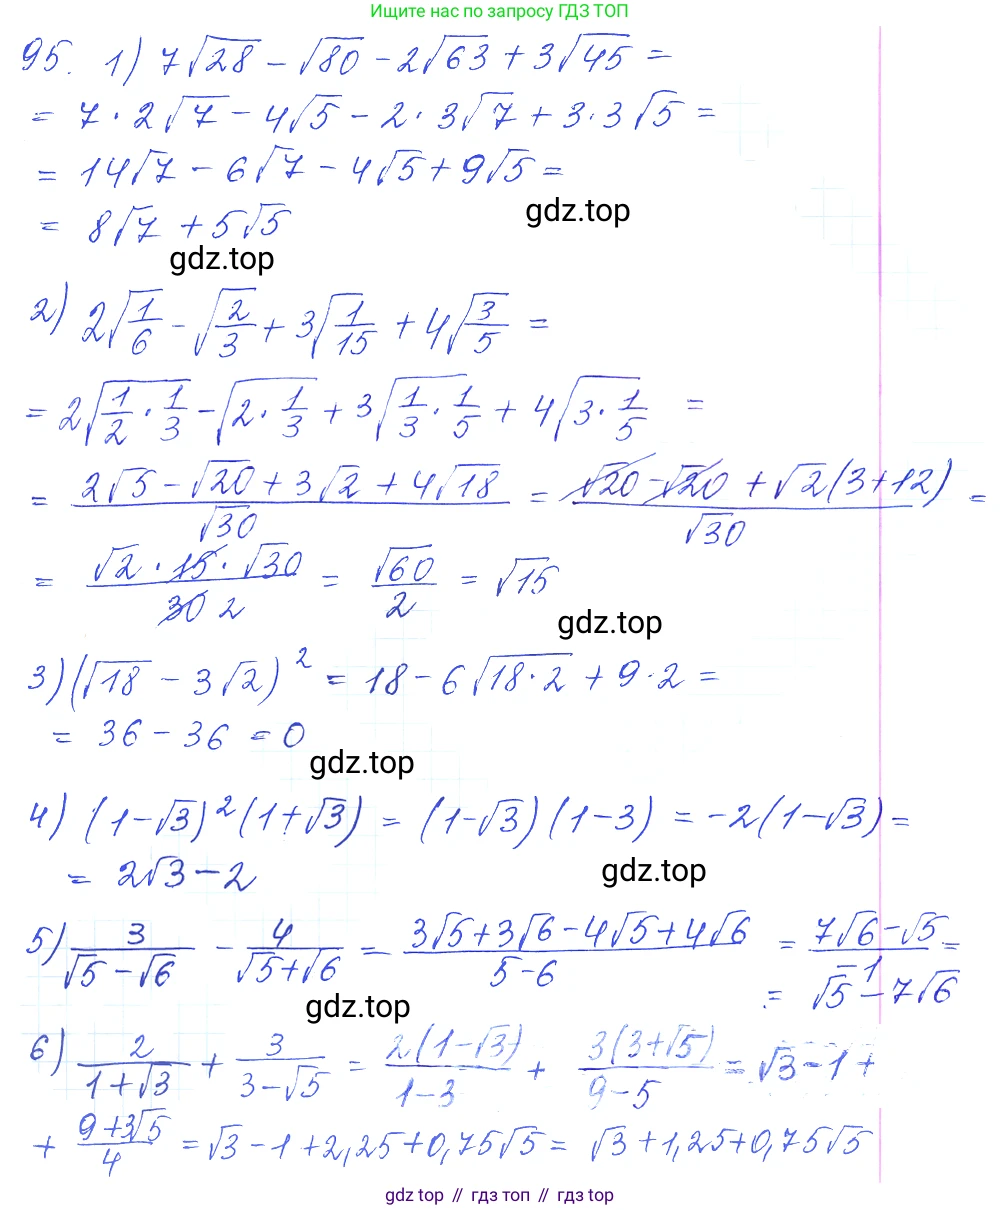 Ищите нас по запросу ГДЗ ТОП
95. 1) 7√28 - √80 - 2√63 + 3√45 =
= 7 · 2√7 - 4√5 - 2 · 3√7 + 3 · 3√5 =
= 14√7 - 6√7 - 4√5 + 9√5 =
= 8√7 + 5√5
gdz.top
gdz.top
2) 2√(1/6) - √(2/3) + 3√(1/15) + 4√(3/5) =
= 2√(1/2 · 1/3) - √(2 · 1/3) + 3√(1/3 · 1/5) + 4√(3 · 1/5) =
= (2√5 - √20 + 3√2 + 4√18)/√30 = (√20 - √20 + √2(3+12))/√30 =
= (√2 · 15 · √30)/(30 2) = √60/2 = √15
gdz.top
3) (√18 - 3√2)² = 18 - 6√(18 · 2) + 9 · 2 =
= 36 - 36 = 0
gdz.top
4) (1-√3)²(1+√3) = (1-√3)(1-3) = -2(1-√3) =
= 2√3 - 2
gdz.top
5) 3/(√5-√6) - 4/(√5+√6) = (3√5+3√6-4√5+4√6)/(5-6) = (7√6-√5)/(-1) =
= √5 - 7√6
gdz.top
6) 2/(1+√3) + 3/(3-√5) = 2(1-√3)/(1-3) + 3(3+√5)/(9-5) = √3 - 1 +
+ (9+3√5)/4 = √3 - 1 + 2,25 + 0,75√5 = √3 + 1,25 + 0,75√5
gdz top // гдз топ // гдз top